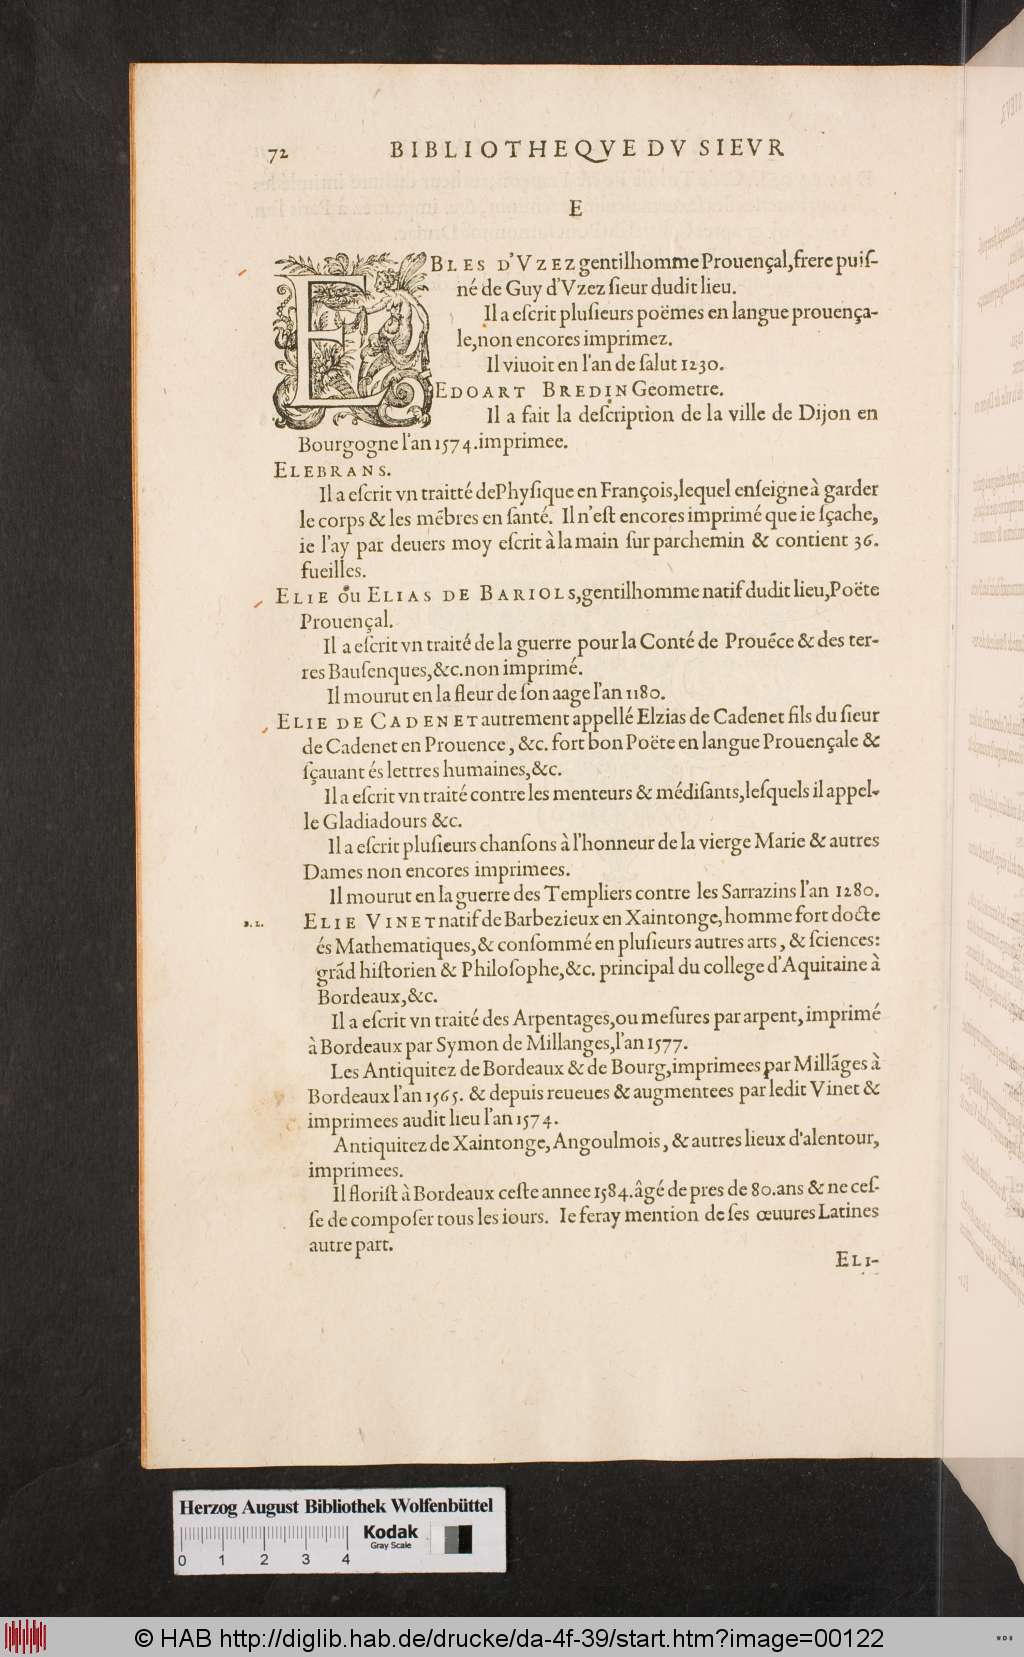 72 BIBLIOTHEQVE DV SIEVR
E
EBLES D'VZEZ gentilhomme Prouençal, frere puiſ-
né de Guy d'Vzez ſieur dudit lieu.
Il a eſcrit pluſieurs poëmes en langue prouença-
le, non encores imprimez.
Il viuoit en l'an de ſalut 1230.
EDOART BREDIN Geometre.
Il a fait la deſcription de la ville de Dijon en
Bourgogne l'an 1574. imprimee.
ELEBRANS.
Il a eſcrit vn traitté de Phyſique en François, lequel enſeigne à garder
le corps & les mēbres en ſanté. Il n'eſt encores imprimé que ie ſçache,
ie l'ay par deuers moy eſcrit à la main ſur parchemin & contient 36.
fueilles.
ELIE ou ELIAS DE BARIOLS, gentilhomme natif dudit lieu, Poëte
Prouençal.
Il a eſcrit vn traité de la guerre pour la Conté de Prouēce & des ter-
res Bauſenques, &c. non imprimé.
Il mourut en la fleur de ſon aage l'an 1180.
ELIE DE CADENET autrement appellé Elzias de Cadenet fils du ſieur
de Cadenet en Prouence, &c. fort bon Poëte en langue Prouençale &
ſçauant és lettres humaines, &c.
Il a eſcrit vn traité contre les menteurs & médiſants, leſquels il appel-
le Gladiadours &c.
Il a eſcrit pluſieurs chanſons à l'honneur de la vierge Marie & autres
Dames non encores imprimees.
Il mourut en la guerre des Templiers contre les Sarrazins l'an 1280.
B. L. ELIE VINET natif de Barbezieux en Xaintonge, homme fort docte
és Mathematiques, & conſommé en pluſieurs autres arts, & ſciences:
grād hiſtorien & Philoſophe, &c. principal du college d'Aquitaine à
Bordeaux, &c.
Il a eſcrit vn traité des Arpentages, ou meſures par arpent, imprimé
à Bordeaux par Symon de Millanges, l'an 1577.
Les Antiquitez de Bordeaux & de Bourg, imprimees par Millāges à
Bordeaux l'an 1565. & depuis reueues & augmentees par ledit Vinet &
imprimees audit lieu l'an 1574.
Antiquitez de Xaintonge, Angoulmois, & autres lieux d'alentour,
imprimees.
Il floriſt à Bordeaux ceſte annee 1584. âgé de pres de 80. ans & ne ceſ-
ſe de compoſer tous les iours. Ie feray mention de ſes œuures Latines
autre part.
ELI-
Herzog August Bibliothek Wolfenbüttel
Kodak
Gray Scale
0 1 2 3 4
© HAB http://diglib.hab.de/drucke/da-4f-39/start.htm?image=00122